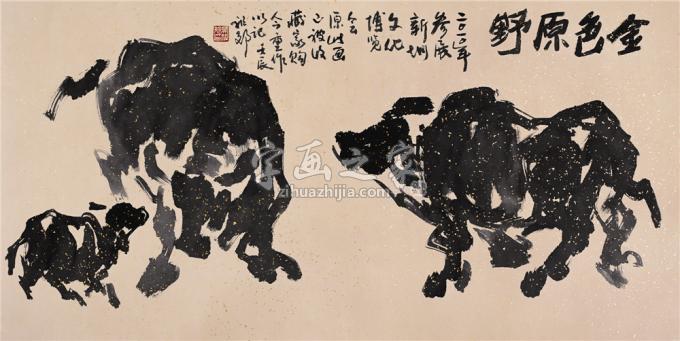 金色原野
二〇一二年
参展
深圳
文化
博览
会
原此画
已被收
藏家购
今重作
以记 壬辰
祖郊
字画之家
zihuazhijia.com